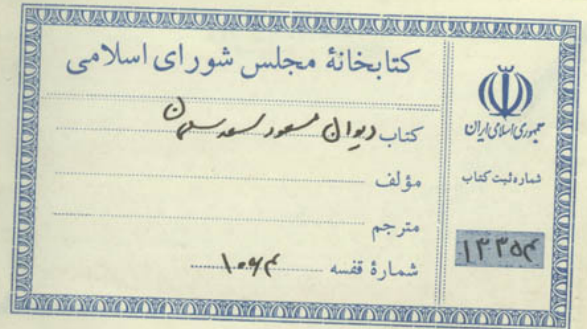 کتابخانهٔ مجلس شورای اسلامی
کتاب دیوان مسعود سعد سلمان
مؤلف
مترجم
شمارهٔ قفسه ۱۰۶۴۰
جمهوری اسلامی ایران
شماره ثبت کتاب